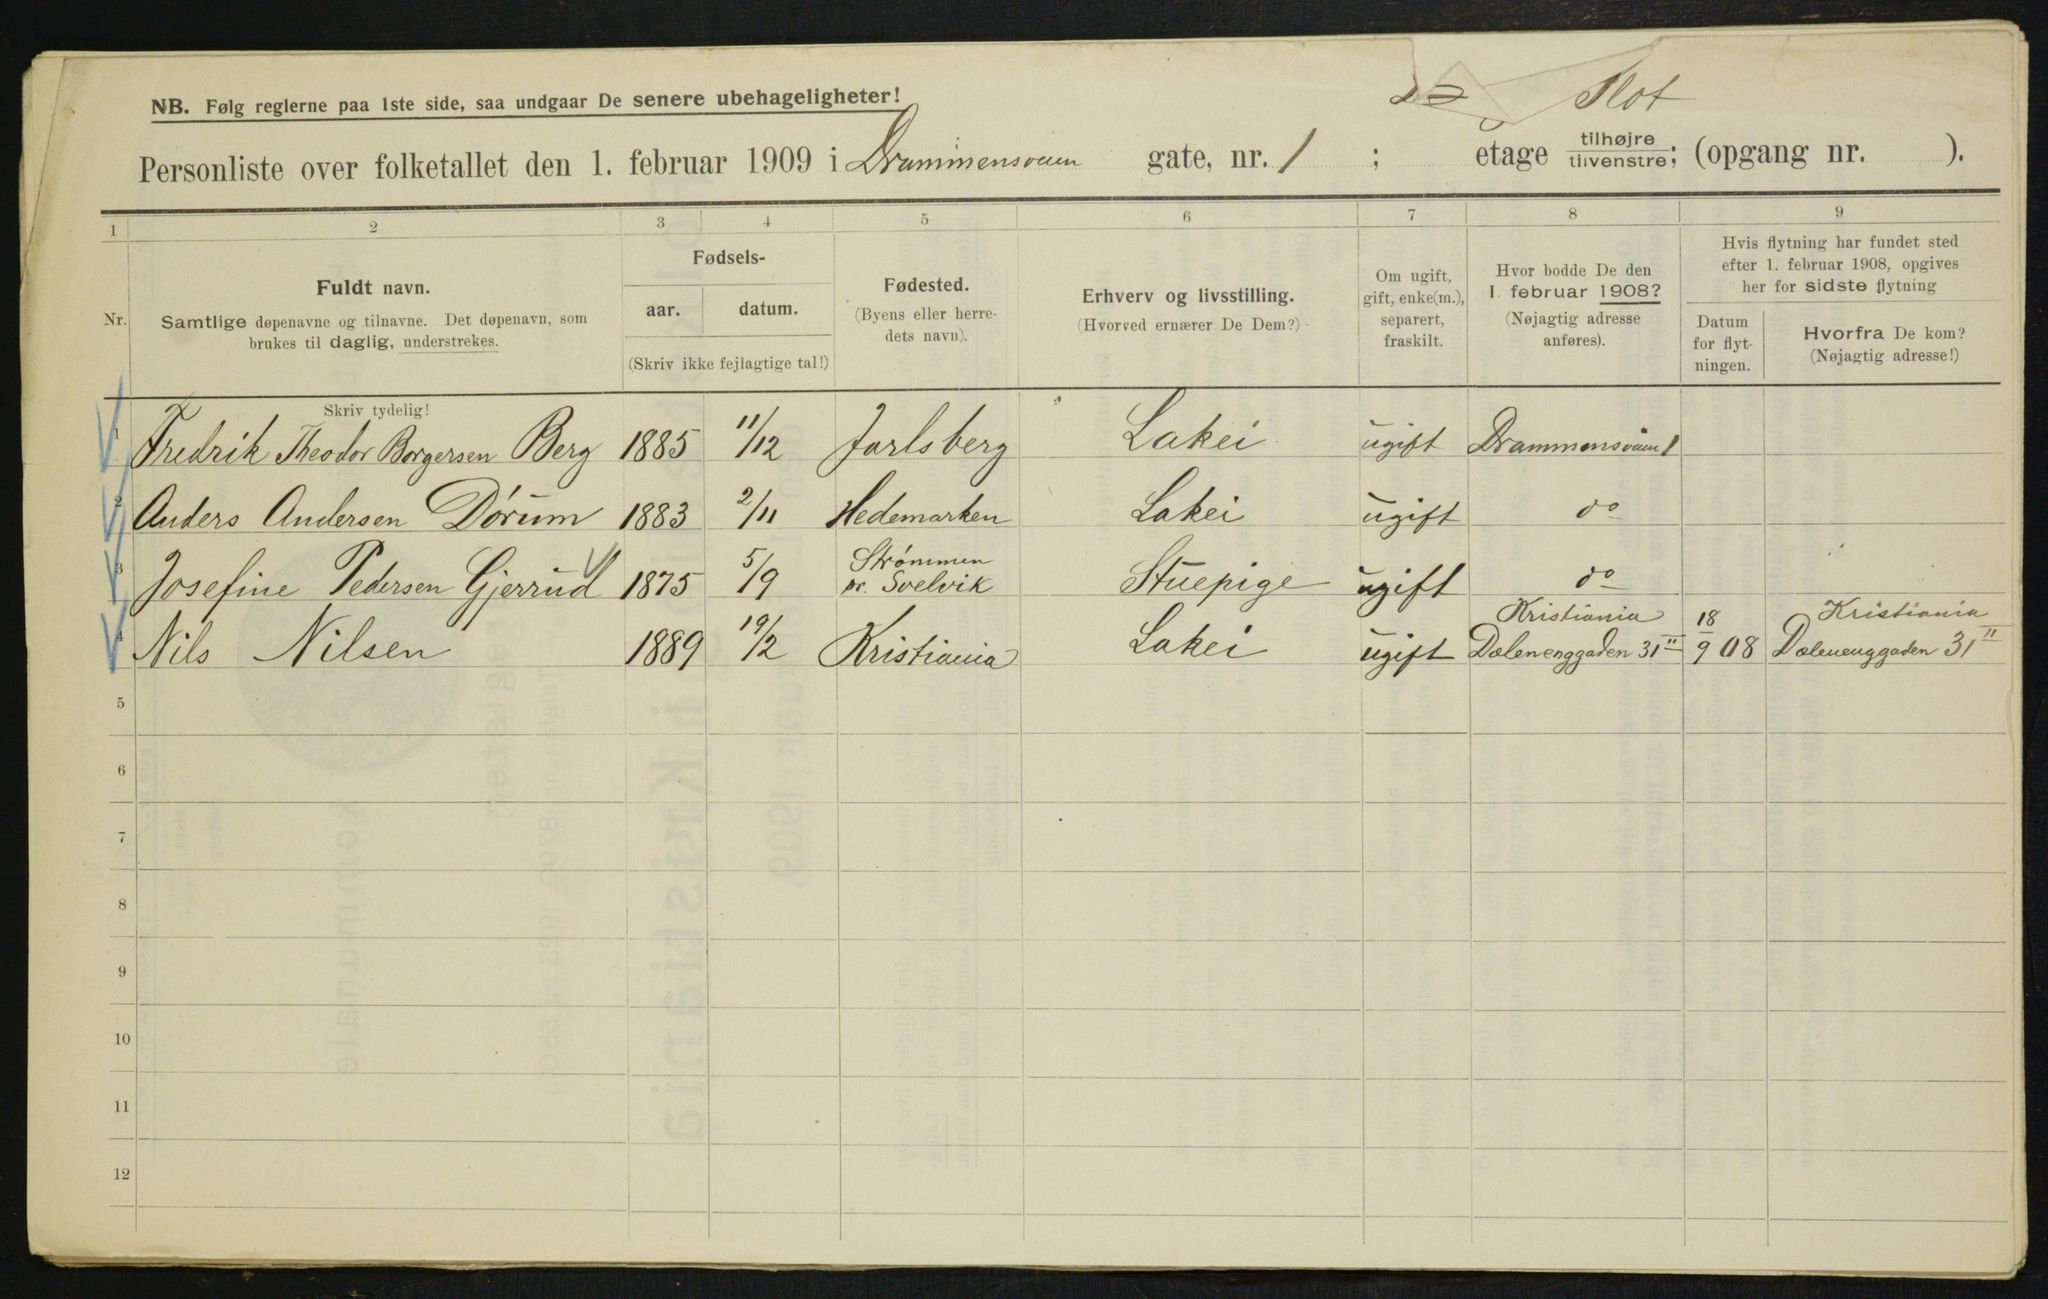 NB. Følg reglerne paa 1ste side, saa undgaar De senere ubehageligheter!
Slot
Personliste over folketallet den 1. februar 1909 i Drammensveien gate, nr. 1 ; etage tilhøjre tilvenstre; (opgang nr. ).
1 2 3 4 5 6 7 8 9
Nr.
Fuldt navn.
Samtlige døpenavne og tilnavne. Det døpenavn, som
brukes til daglig, understrekes.
Fødsels-
aar. datum.
(Skriv ikke fejlagtige tal!)
Fødested.
(Byens eller herre-
dets navn).
Erhverv og livsstilling.
(Hvorved ernærer De Dem?)
Om ugift,
gift, enke(m.),
separert,
fraskilt.
Hvor bodde De den
1. februar 1908?
(Nøjagtig adresse
anføres).
Hvis flytning har fundet sted
efter 1. februar 1908, opgives
her for sidste flytning
Datum
for flyt-
ningen.
Hvorfra De kom?
(Nøjagtig adresse!)
Skriv tydelig!
1 Fredrik Theodor Borgersen Berg 1885 11/12 Jarlsberg Lakei ugift Drammensveien 1
2 Anders Andersen Dørum 1883 2/11 Hedemarken Lakei ugift do
3 Josefine Pedersen Gjerrud 1875 5/9 Strømmen pr. Svelvik Stuepige ugift do
4 Nils Nilsen 1889 19/2 Kristiania Lakei ugift Kristiania Dælenenggaden 31 II 18/9 08 Kristiania Dælenenggaden 31 II
5
6
7
8
9
10
11
12